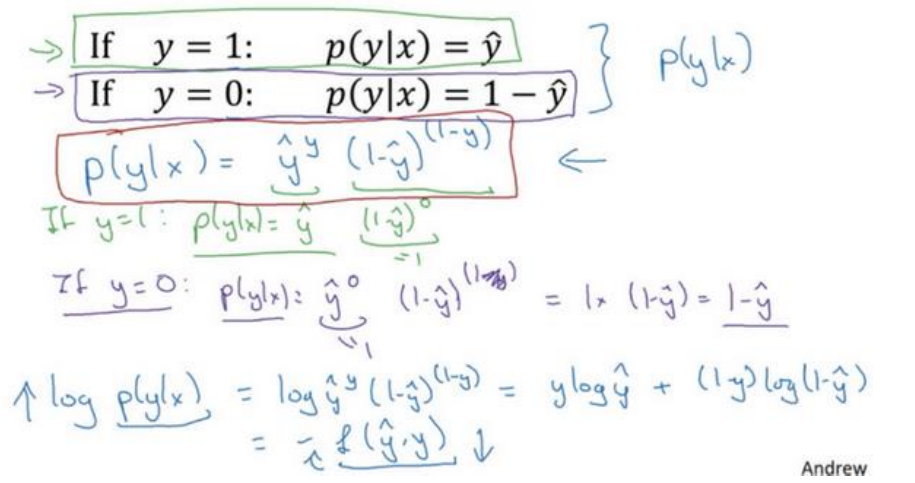 If y = 1: p(y|x) = ŷ
If y = 0: p(y|x) = 1 − ŷ
p(y|x)
p(y|x) = ŷ^y (1-ŷ)^(1-y)
If y=1: p(y|x) = ŷ (1-ŷ)^0
=1
If y=0: p(y|x) = ŷ^0 (1-ŷ)^(1-y) = 1× (1-ŷ) = 1-ŷ
=1
↑ log p(y|x) = log ŷ^y (1-ŷ)^(1-y) = y log ŷ + (1-y) log(1-ŷ)
= - ℒ(ŷ,y) ↓
Andrew